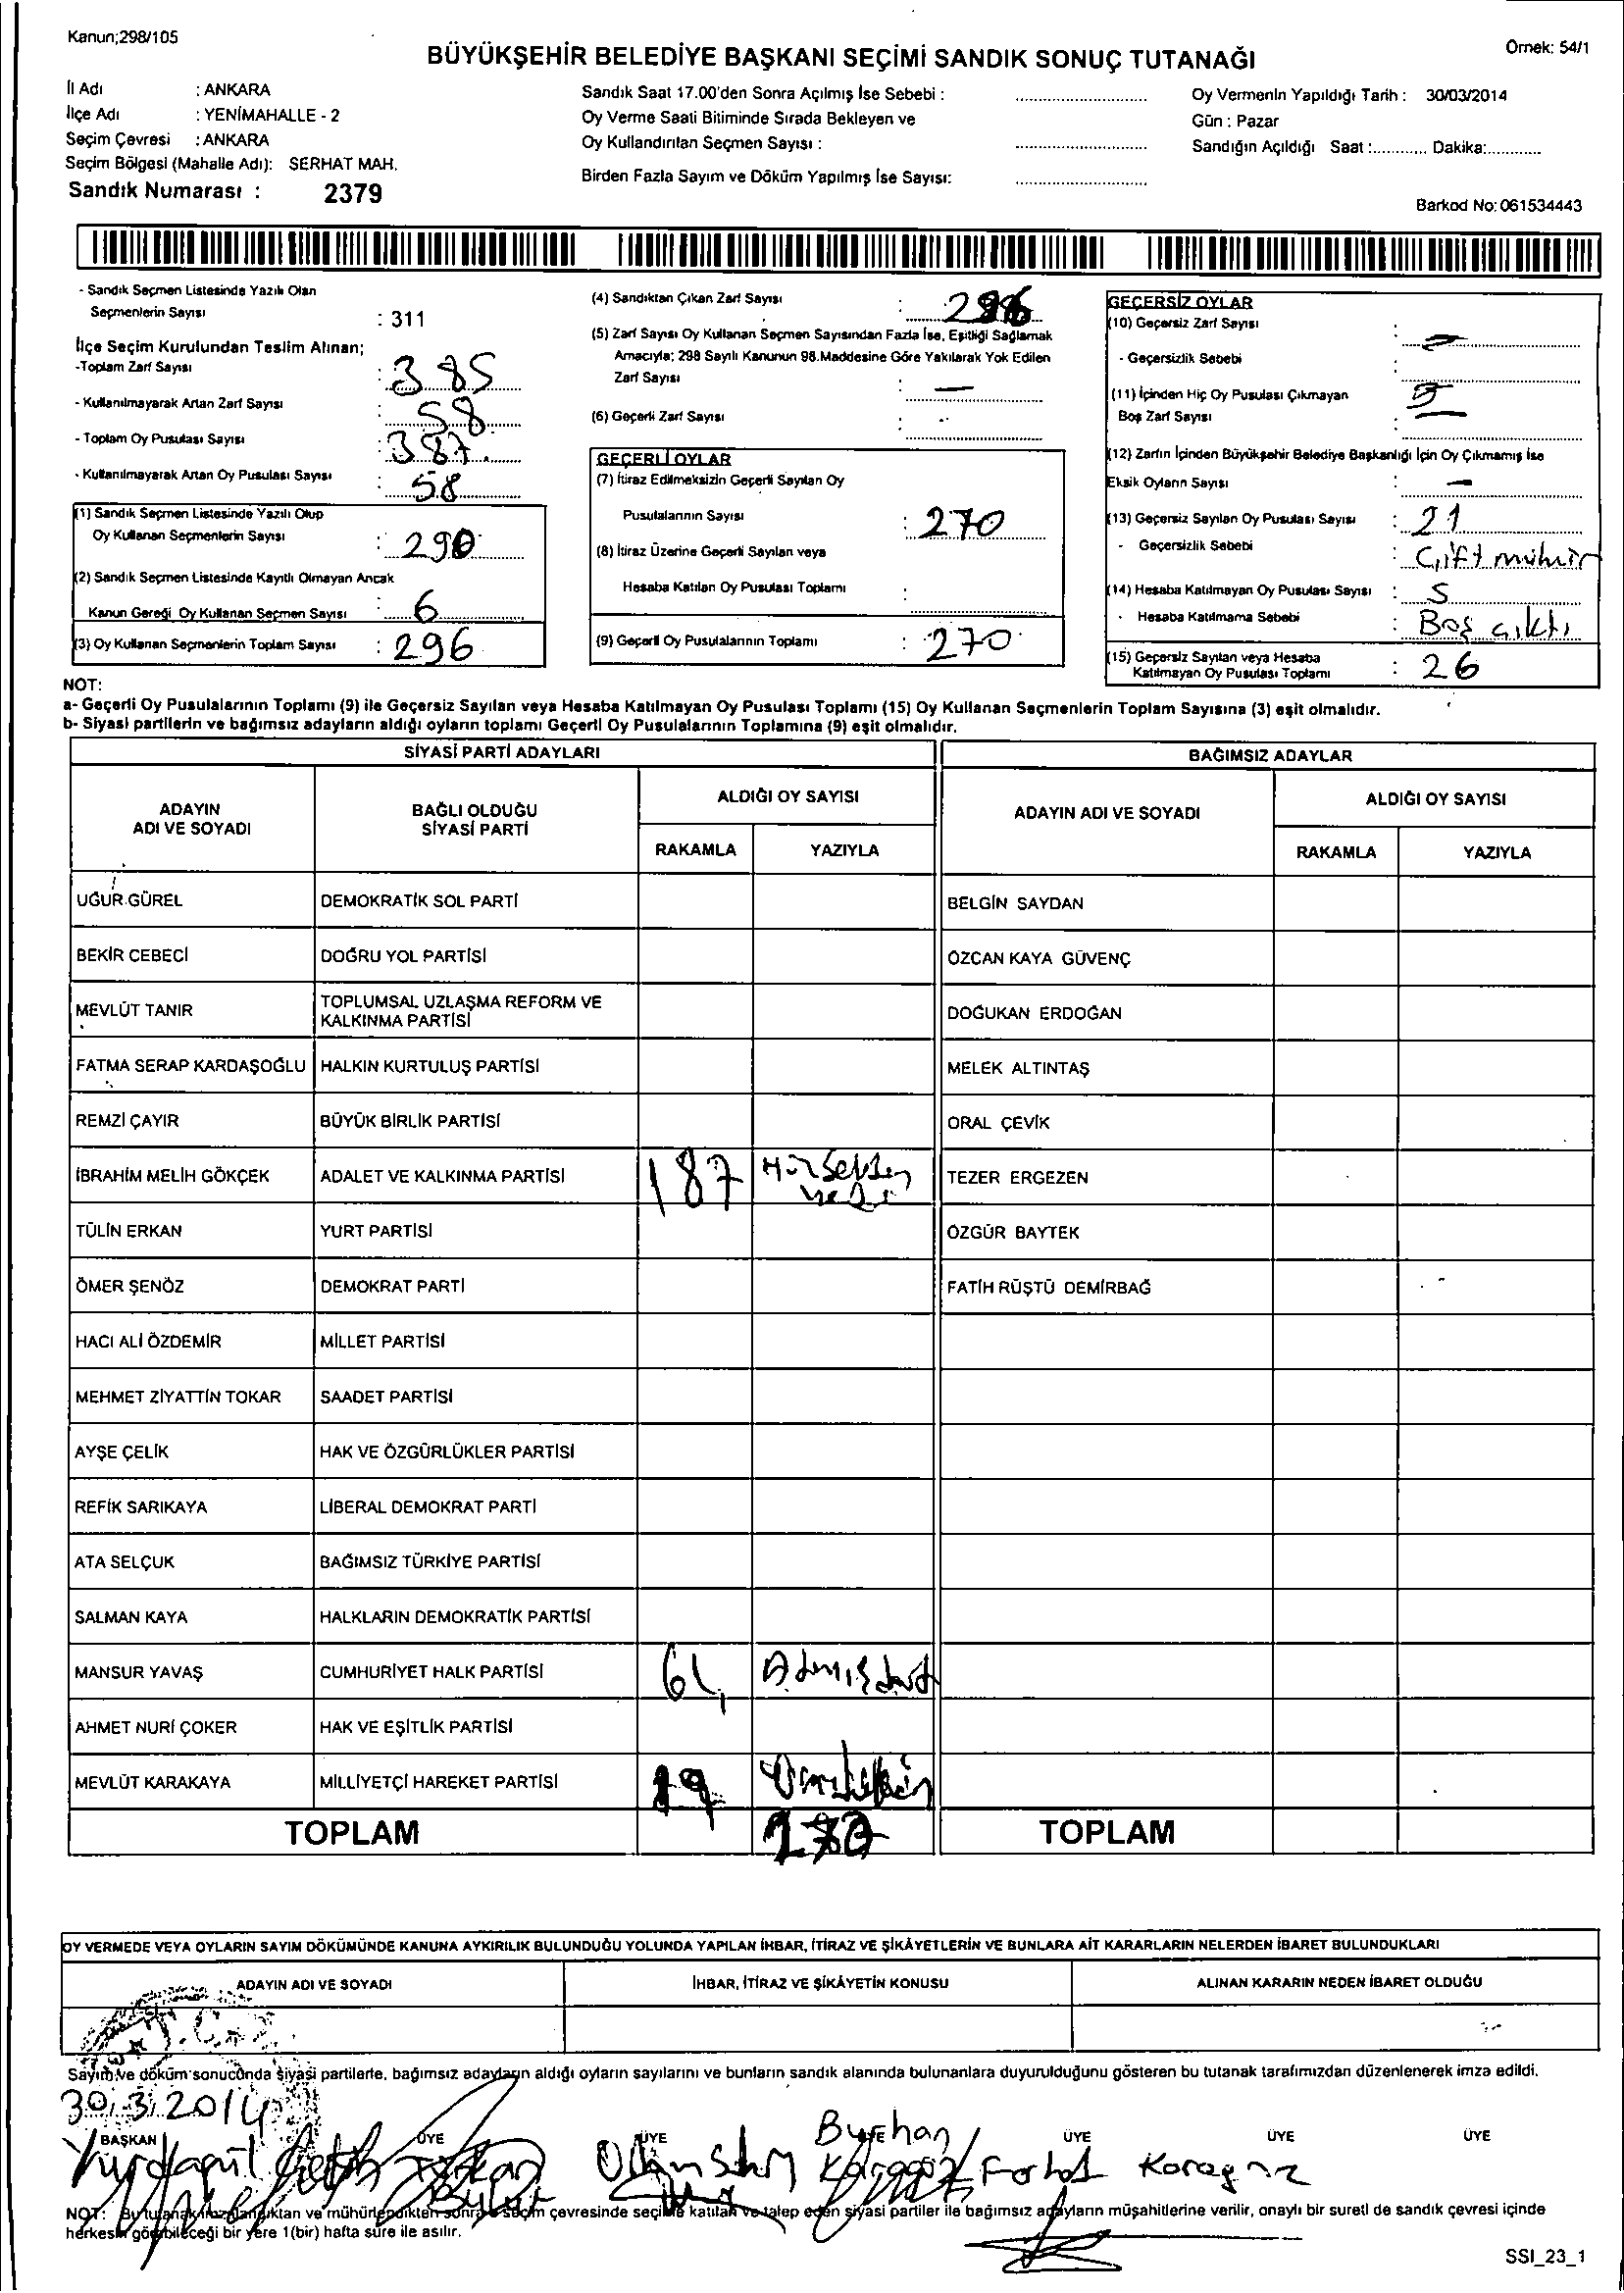 Kanun;298/105
Örnek: 54/1
BÜYÜKŞEHİR BELEDİYE BAŞKANI SEÇİMİ SANDIK SONUÇ TUTANAĞI
İl Adı : ANKARA
İlçe Adı : YENİMAHALLE - 2
Seçim Çevresi : ANKARA
Seçim Bölgesi (Mahalle Adı): SERHAT MAH.
Sandık Numarası : 2379
Sandık Saat 17.00'den Sonra Açılmış İse Sebebi :
Oy Verme Saati Bitiminde Sırada Bekleyen ve
Oy Kullandırılan Seçmen Sayısı :
Birden Fazla Sayım ve Döküm Yapılmış İse Sayısı:
Oy Vermenin Yapıldığı Tarih : 30/03/2014
Gün : Pazar
Sandığın Açıldığı Saat :............ Dakika:............
Barkod No: 061534443
- Sandık Seçmen Listesinde Yazılı Olan
Seçmenlerin Sayısı : 311
İlçe Seçim Kurulundan Teslim Alınan;
-Toplam Zarf Sayısı : 385
- Kullanılmayarak Artan Zarf Sayısı : 58
- Toplam Oy Pusulası Sayısı : 387
- Kullanılmayarak Artan Oy Pusulası Sayısı : 58
(1) Sandık Seçmen Listesinde Yazılı Olup
Oy Kullanan Seçmenlerin Sayısı : 290
(2) Sandık Seçmen Listesinde Kayıtlı Olmayan Ancak
Kanun Gereği Oy Kullanan Seçmen Sayısı : 6
(3) Oy Kullanan Seçmenlerin Toplam Sayısı : 296
(4) Sandıktan Çıkan Zarf Sayısı : 296
(5) Zarf Sayısı Oy Kullanan Seçmen Sayısından Fazla İse, Eşitliği Sağlamak
Amacıyla; 298 Sayılı Kanunun 98.Maddesine Göre Yakılarak Yok Edilen
Zarf Sayısı : —
(6) Geçerli Zarf Sayısı :
GEÇERLİ OYLAR
(7) İtiraz Edilmeksizin Geçerli Sayılan Oy
Pusulalarının Sayısı : 270
(8) İtiraz Üzerine Geçerli Sayılan veya
Hesaba Katılan Oy Pusulası Toplamı :
(9) Geçerli Oy Pusulalarının Toplamı : 270
GEÇERSİZ OYLAR
(10) Geçersiz Zarf Sayısı : —
- Geçersizlik Sebebi :
(11) İçinden Hiç Oy Pusulası Çıkmayan
Boş Zarf Sayısı : —
(12) Zarfın İçinden Büyükşehir Belediye Başkanlığı İçin Oy Çıkmamış İse
Eksik Oyların Sayısı : —
(13) Geçersiz Sayılan Oy Pusulası Sayısı : 21
- Geçersizlik Sebebi : Çift mühür
(14) Hesaba Katılmayan Oy Pusulası Sayısı : 5
- Hesaba Katılmama Sebebi : Boş çıktı
(15) Geçersiz Sayılan veya Hesaba
Katılmayan Oy Pusulası Toplamı : 26
NOT:
a- Geçerli Oy Pusulalarının Toplamı (9) ile Geçersiz Sayılan veya Hesaba Katılmayan Oy Pusulası Toplamı (15) Oy Kullanan Seçmenlerin Toplam Sayısına (3) eşit olmalıdır.
b- Siyasi partilerin ve bağımsız adayların aldığı oyların toplamı Geçerli Oy Pusulalarının Toplamına (9) eşit olmalıdır.
SİYASİ PARTİ ADAYLARI
BAĞIMSIZ ADAYLAR
ADAYIN ADI VE SOYADI
BAĞLI OLDUĞU SİYASİ PARTİ
ALDIĞI OY SAYISI
RAKAMLA YAZIYLA
ADAYIN ADI VE SOYADI
ALDIĞI OY SAYISI
RAKAMLA YAZIYLA
UĞUR GÜREL DEMOKRATİK SOL PARTİ BELGİN SAYDAN
BEKİR CEBECİ DOĞRU YOL PARTİSİ ÖZCAN KAYA GÜVENÇ
MEVLÜT TANIR TOPLUMSAL UZLAŞMA REFORM VE KALKINMA PARTİSİ DOĞUKAN ERDOĞAN
FATMA SERAP KARDAŞOĞLU HALKIN KURTULUŞ PARTİSİ MELEK ALTINTAŞ
REMZİ ÇAYIR BÜYÜK BİRLİK PARTİSİ ORAL ÇEVİK
İBRAHİM MELİH GÖKÇEK ADALET VE KALKINMA PARTİSİ 187 TEZER ERGEZEN
TÜLİN ERKAN YURT PARTİSİ ÖZGÜR BAYTEK
ÖMER ŞENÖZ DEMOKRAT PARTİ FATİH RÜŞTÜ DEMİRBAĞ
HACI ALİ ÖZDEMİR MİLLET PARTİSİ
MEHMET ZİYATTİN TOKAR SAADET PARTİSİ
AYŞE ÇELİK HAK VE ÖZGÜRLÜKLER PARTİSİ
REFİK SARIKAYA LİBERAL DEMOKRAT PARTİ
ATA SELÇUK BAĞIMSIZ TÜRKİYE PARTİSİ
SALMAN KAYA HALKLARIN DEMOKRATİK PARTİSİ
MANSUR YAVAŞ CUMHURİYET HALK PARTİSİ
AHMET NURİ ÇOKER HAK VE EŞİTLİK PARTİSİ
MEVLÜT KARAKAYA MİLLİYETÇİ HAREKET PARTİSİ
TOPLAM 270 TOPLAM
OY VERMEDE VEYA OYLARIN SAYIM DÖKÜMÜNDE KANUNA AYKIRILIK BULUNDUĞU YOLUNDA YAPILAN İHBAR, İTİRAZ VE ŞİKÂYETLERİN VE BUNLARA AİT KARARLARIN NELERDEN İBARET BULUNDUKLARI
ADAYIN ADI VE SOYADI İHBAR, İTİRAZ VE ŞİKÂYETİN KONUSU ALINAN KARARIN NEDEN İBARET OLDUĞU
Sayım ve döküm sonucunda siyasi partilerle, bağımsız adayların aldığı oyların sayılarını ve bunların sandık alanında bulunanlara duyurulduğunu gösteren bu tutanak tarafımızdan düzenlenerek imza edildi.
30.3.2014
BAŞKAN ÜYE ÜYE ÜYE ÜYE ÜYE ÜYE
Burhan Karagöz Ferhat Karagöz
NOT: Bu tutanak imzalandıktan ve mühürlendikten sonra o seçim çevresinde seçime katılan ve talep eden siyasi partiler ile bağımsız adayların müşahitlerine verilir, onaylı bir sureti de sandık çevresi içinde
herkesin görebileceği bir yere 1(bir) hafta süre ile asılır.
SSI_23_1